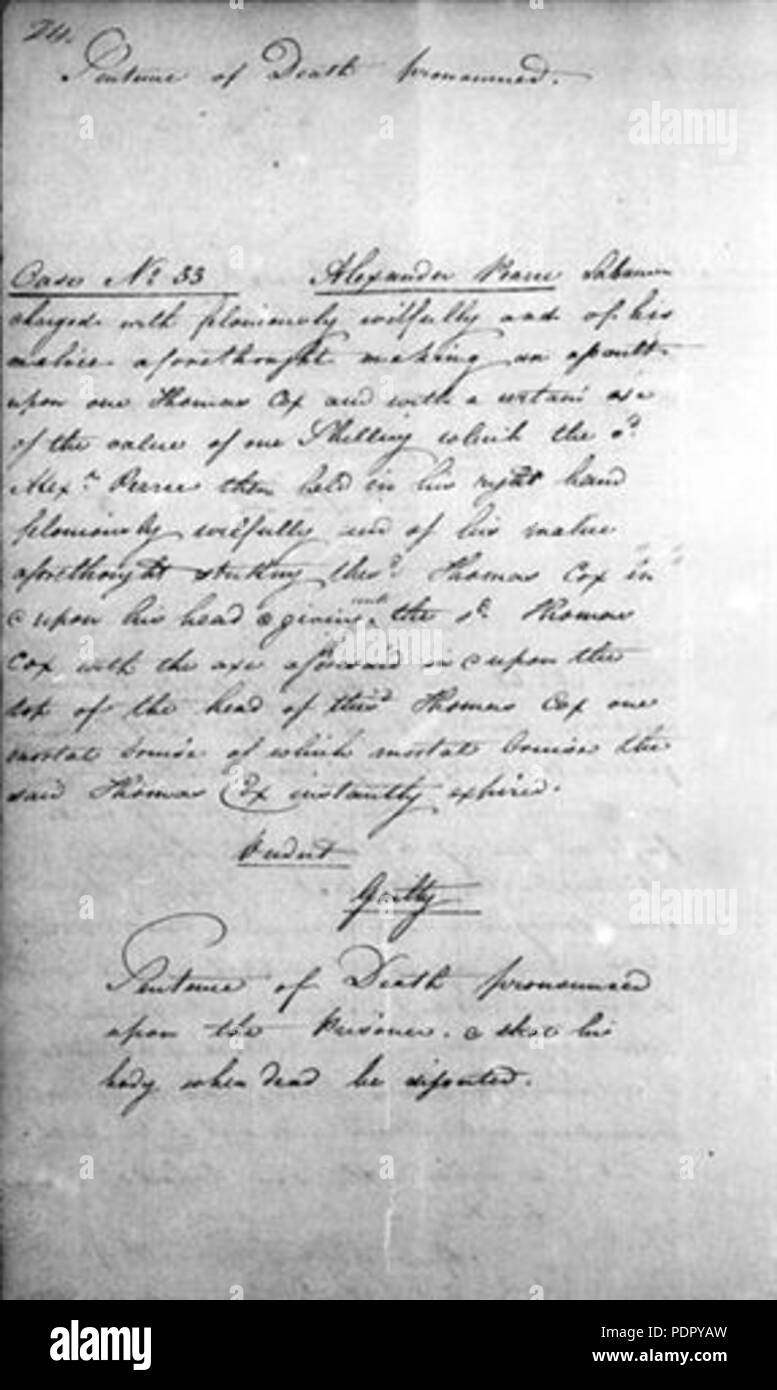 24.
Sentence of Death pronounced.
Case No. 33 Alexander Pearce Labourer
charged with feloniously wilfully and of his
malice aforethought making an assault
upon one Thomas Cox and with a certain axe
of the value of one Shilling which the sd.
Alexr. Pearce then held in his right hand
feloniously wilfully and of his malice
aforethought striking the sd. Thomas Cox in
& upon his head & giving unto the sd. Thomas
Cox with the axe aforesaid in & upon the
top of the head of the sd. Thomas Cox one
mortal bruise of which mortal bruise the
said Thomas Cox instantly expired.
Verdict
Guilty
Sentence of Death pronounced
upon the Prisoner. & that his
body when dead be disected.
a
alamy
alamy
a
alamy
a
alamy
Image ID: PDPYAW
www.alamy.com